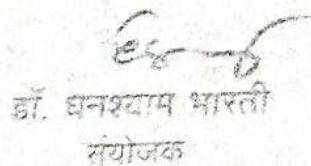 डॉ. घनश्याम भारती
संयोजक